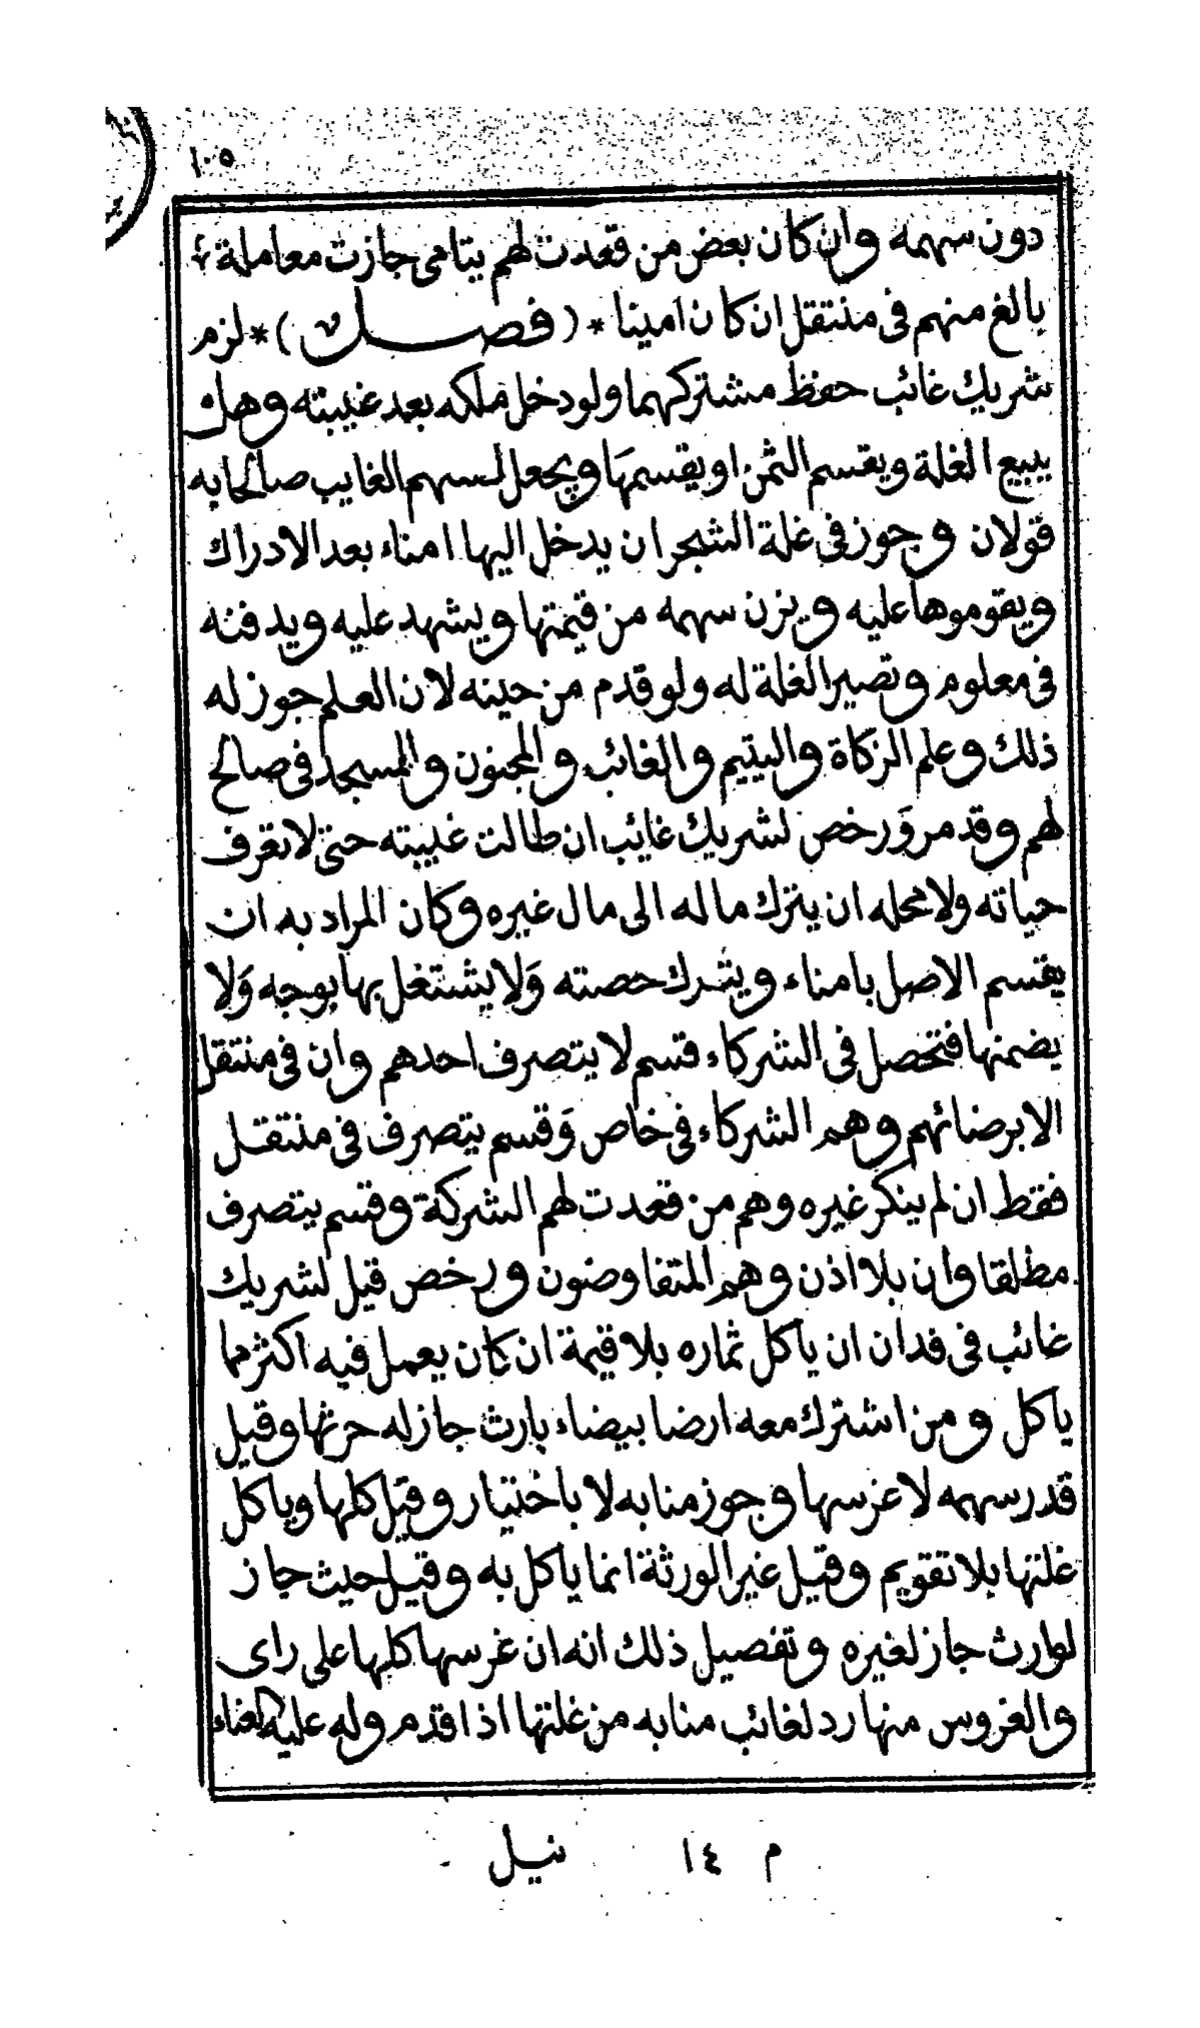 ١٠٥
دون سهمه وان كان بعض من قعدت لهم يتامى جازت معاملة
بالغ منهم فى منتقل ان كان امينا * ( فصل ) * لزم
شريك غائب حفظ مشتركهما ولو دخل ملكه بعد غيبته وهل
يبيع الغلة ويقسم الثمن او يقسمها ويجعل لسهم الغايب صالحا به
قولان وجوز فى غلة الشجر ان يدخل اليها امناء بعد الادراك
ويقوموها عليه ويزن سهمه من قيمتها ويشهد عليه ويدفنه
فى معلوم وتصير الغلة له ولو قدم من حينه لان العلم جوز له
ذلك وعلم الزكاة واليتيم والغائب والمجنون والمسجد فى صالح
لهم وقد مر وَرخص لشريك غائب ان طالت غيبته حتى لا تعرف
حياته ولا محله ان يترك ماله الى مال غيره وكان المراد به ان
يقسم الاصل بامناء ويترك حصته وَلا يشتغل بها بوجه وَلا
يضمنها فتحصل فى الشركاء قسم لا يتصرف احدهم وان فى منتقل
الا برضائهم وهم الشركاء فى خاص وَقسم يتصرف فى منتقل
فقط ان لم ينكر غيره وهم من قعدت لهم الشركة وقسم يتصرف
مطلقا وان بلا اذن وهم المتفاوضون ورخص قيل لشريك
غائب فى فدان ان ياكل ثماره بلا قيمة ان كان يعمل فيه اكثر مما
ياكل ومن اشترك معه ارضا بيضاء بارث جاز له حرثها وقيل
قدر سهمه لا غرسها وجوز منابه لا باختيار وقيل كلها وياكل
غلتها بلا تقويم وقيل غير الورثة انما ياكل به وقيل حيث جاز
لوارث جاز لغيره وتفصيل ذلك انه ان غرسها كلها على راى
والغروس منها رد لغائب منابه من غلتها اذا قدم وله عليه العناء
م ١٤ نيل